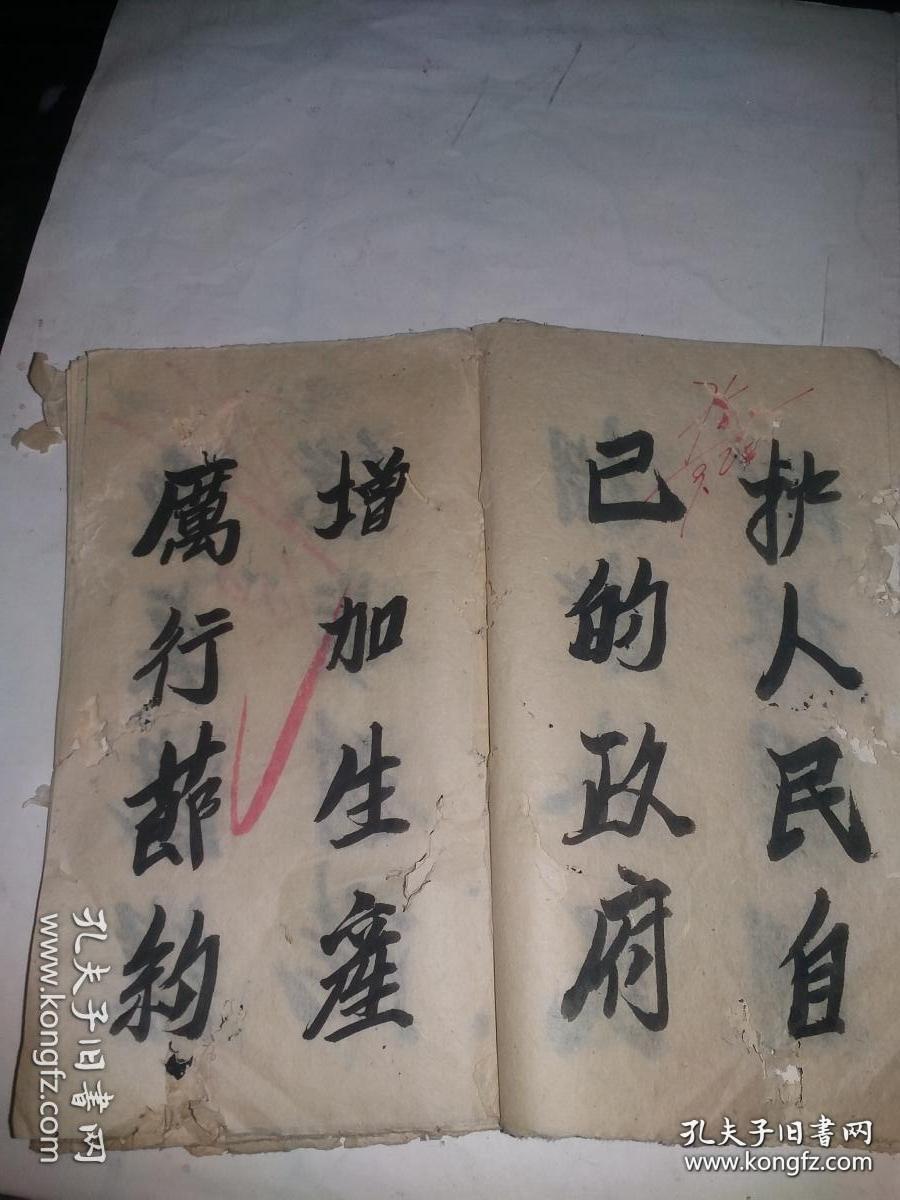 护人民自
已的政府
增加生產
厲行節約
孔夫子旧書网
www.kongfz.com
孔夫子旧書网
www.kongfz.com